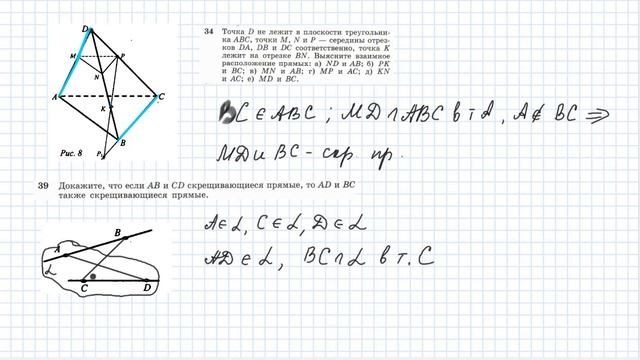 34 Точка D не лежит в плоскости треугольни-
ка ABC, точки M, N и P — середины отрез-
ков DA, DB и DC соответственно, точка K
лежит на отрезке BN. Выясните взаимное
расположение прямых: а) ND и AB; б) PK
и BC; в) MN и AB; г) MP и AC; д) KN
и AC; е) MD и BC.
D
M P
N
A K C
B
P₁
Рис. 8
BC ∈ ABC ; MD ∩ ABC в т A , A ∉ BC ⇒
MD и BC – скр. пр.
39 Докажите, что если AB и CD скрещивающиеся прямые, то AD и BC
также скрещивающиеся прямые.
A ∈ α, C ∈ α, D ∈ α
AD ∈ α, BC ∩ α в т. C
A B
α
C D